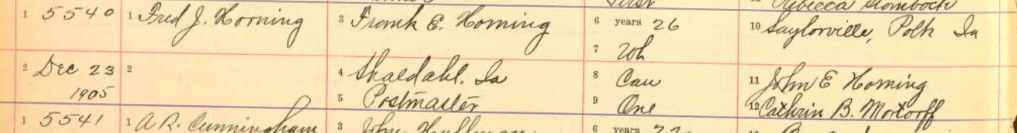 First Rebecca
1 5540 1 Fred J. Horning 3 Frank E. Horning 6 years 26 10 Saylorville, Polk Ia
7 Wh
2 Dec 23 2 4 Shaldahl. Ia 8 Cau 11 John E Horning
1905 5 Postmaster 9 One 12 Cathrin B. Mortorff
1 5541 1 A R. Cunningham 3 John 6 years